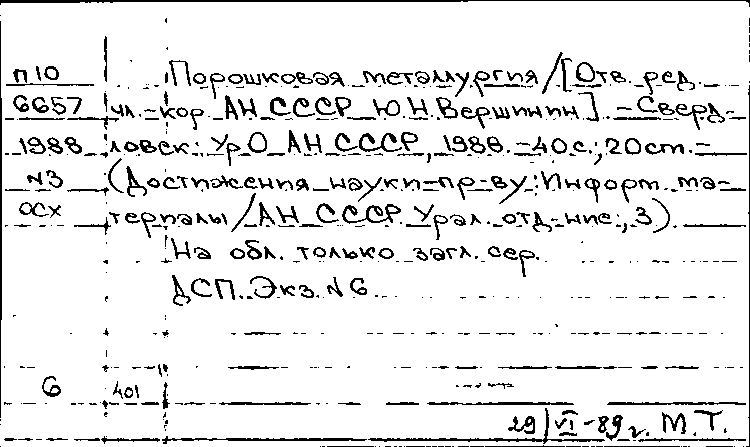 П10 Порошковая металлургия/[Отв. ред.
6657 чл.-кор. АН СССР Ю.Н.Вершинин]. -Сверд-
1988 ловск: УрО АН СССР, 1988.-40с.;20см.-
N3 (Достижения науки-пр-ву:Информ. ма-
ОСХ териалы/АН СССР. Урал. отд-ние:,3).
На обл. только загл. сер.
ДСП. Экз. N6
6 401
29/VI-89г. М.Т.